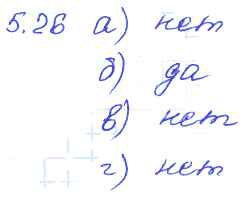 5.26 а) нет
б) да
в) нет
г) нет